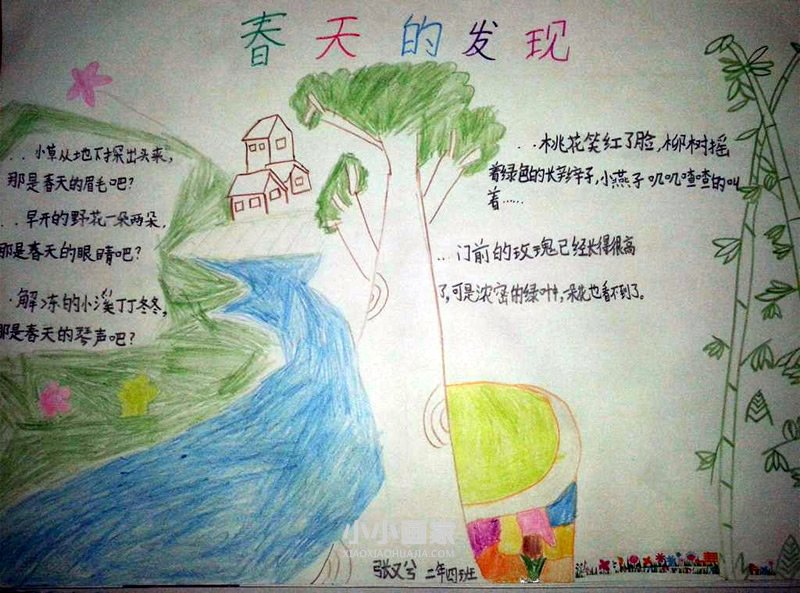 春天的发现
..小草从地下探出头来,
那是春天的眉毛吧?
..早开的野花一朵两朵,
那是春天的眼睛吧?
·解冻的小溪丁丁冬冬,
那是春天的琴声吧?
..桃花笑红了脸,柳树摇
着绿色的长辫子,小燕子叽叽喳喳的叫
着......
...门前的玫瑰已经长得很高
了,可是浓密的绿叶,朵花也看不到了。
小小画家
XIAOXIAOHUAJIA.COM
张又兮 二年四班